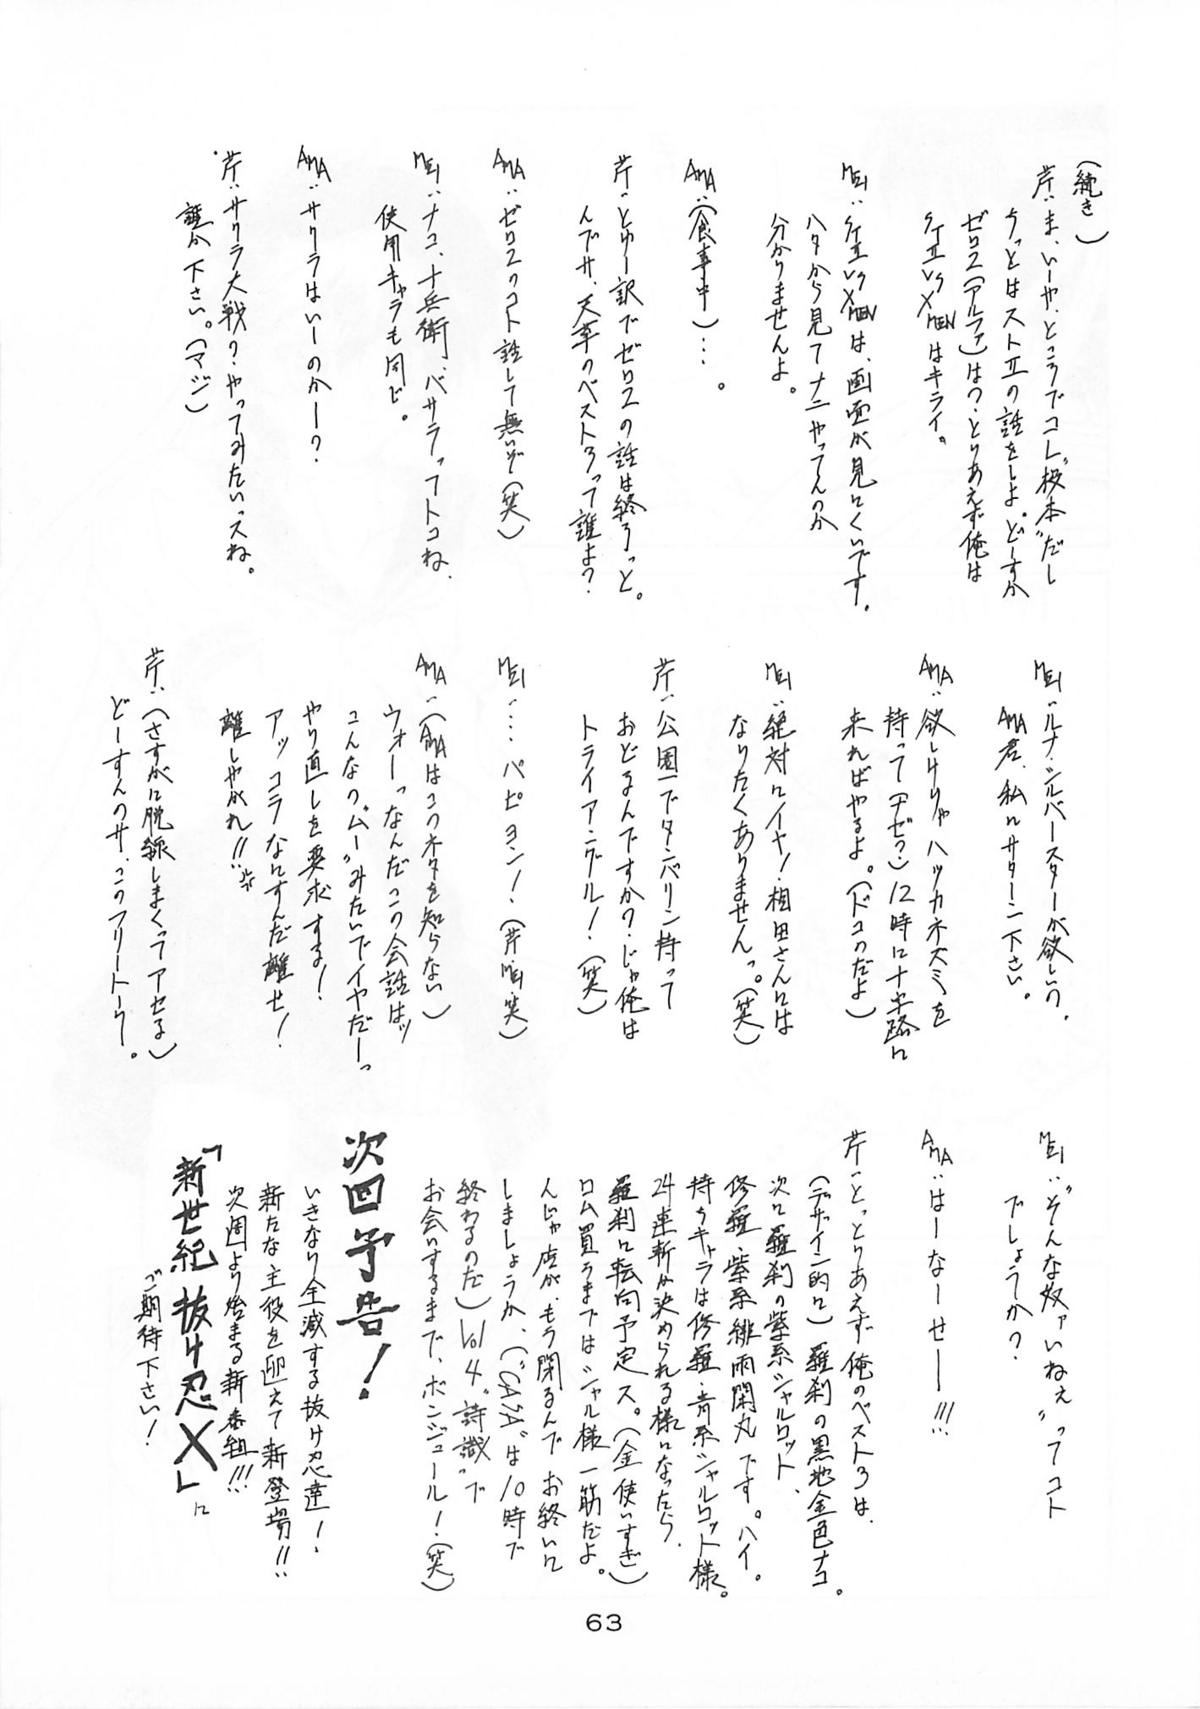 (続き)
芹:ま、いーや、ところでコレ"桜本"だし
ちっとはストⅡの話をしよ。どーすか
ゼロ2(アルファ)は?とりあえず俺は
ストⅡ VS X MENはキライ。
MEI:ストⅡ VS X MENは、画面が見にくいです。
ハタから見てナニやってんのか
分かりませんよ。
AMA:(食事中)…。
芹:とゆー訳でゼロ2の話は終ろっと。
んでサ、天草のベスト3って誰よ?
AMA:ゼロ2のコト話して無いぞ(笑)
MEI:ナコ、十兵衛、バサラってトコね、
使用キャラも同じ。
AMA:サクラはいーのかー?
芹:サクラ大戦?やってみたいっスね。
誰か下さい。(マジ)
MEI:ルナ・シルバースターが欲しいの。
AMA君、私にサターン下さい。
AMA:欲しけりゃハツカネズミを
持って(ナゼ?)12時に十字路に
来ればやるよ。(ドコのだよ)
MEI:絶対にイヤ!相田さんには
なりたくありませんっ。(笑)
芹:公園でタンバリン持って
おどるんですか?じゃ俺は
トライアングル!(笑)
MEI:…パピヨン!(芹MEI笑)
AMA:(AMAはこのネタを知らない)
ウォーっなんだこの会話はッ
こんなの"ムー"みたいでイヤだーっ
やり直しを要求する!
アッコラなにすんだ離せ!
離しやがれ!!
芹:(さすがに脱線しまくってアセる)
どーすんのサ、このフリートーク。
MEI:"そんな奴ァいねぇ"ってコト
でしょうか?
AMA:はーなーせー!!!
芹:とっとりあえず俺のベスト3は、
(デザイン的に)羅刹の黒地金色ナコ。
次に羅刹の紫系シャルロット、
修羅・紫系緋雨閑丸です。ハイ。
持ちキャラは修羅・青系シャルロット様。
24連斬が決められる様になったら、
羅刹に転向予定ス。(金使いすぎ)
ロム買うまではシャル様一筋だよ。
んじゃ店が、もう閉るんで、お終いに
しましょうか、("CASA"は10時で
終わるのだ) Vol 4"詩識"で
お会いするまで、ボンジュール!(笑)
次回予告!
いきなり全滅する抜け忍達!
新たな主役を迎えて新登場!!
次週より始まる新番組!!!
「新世紀 抜け忍X」に
ご期待下さい!
63